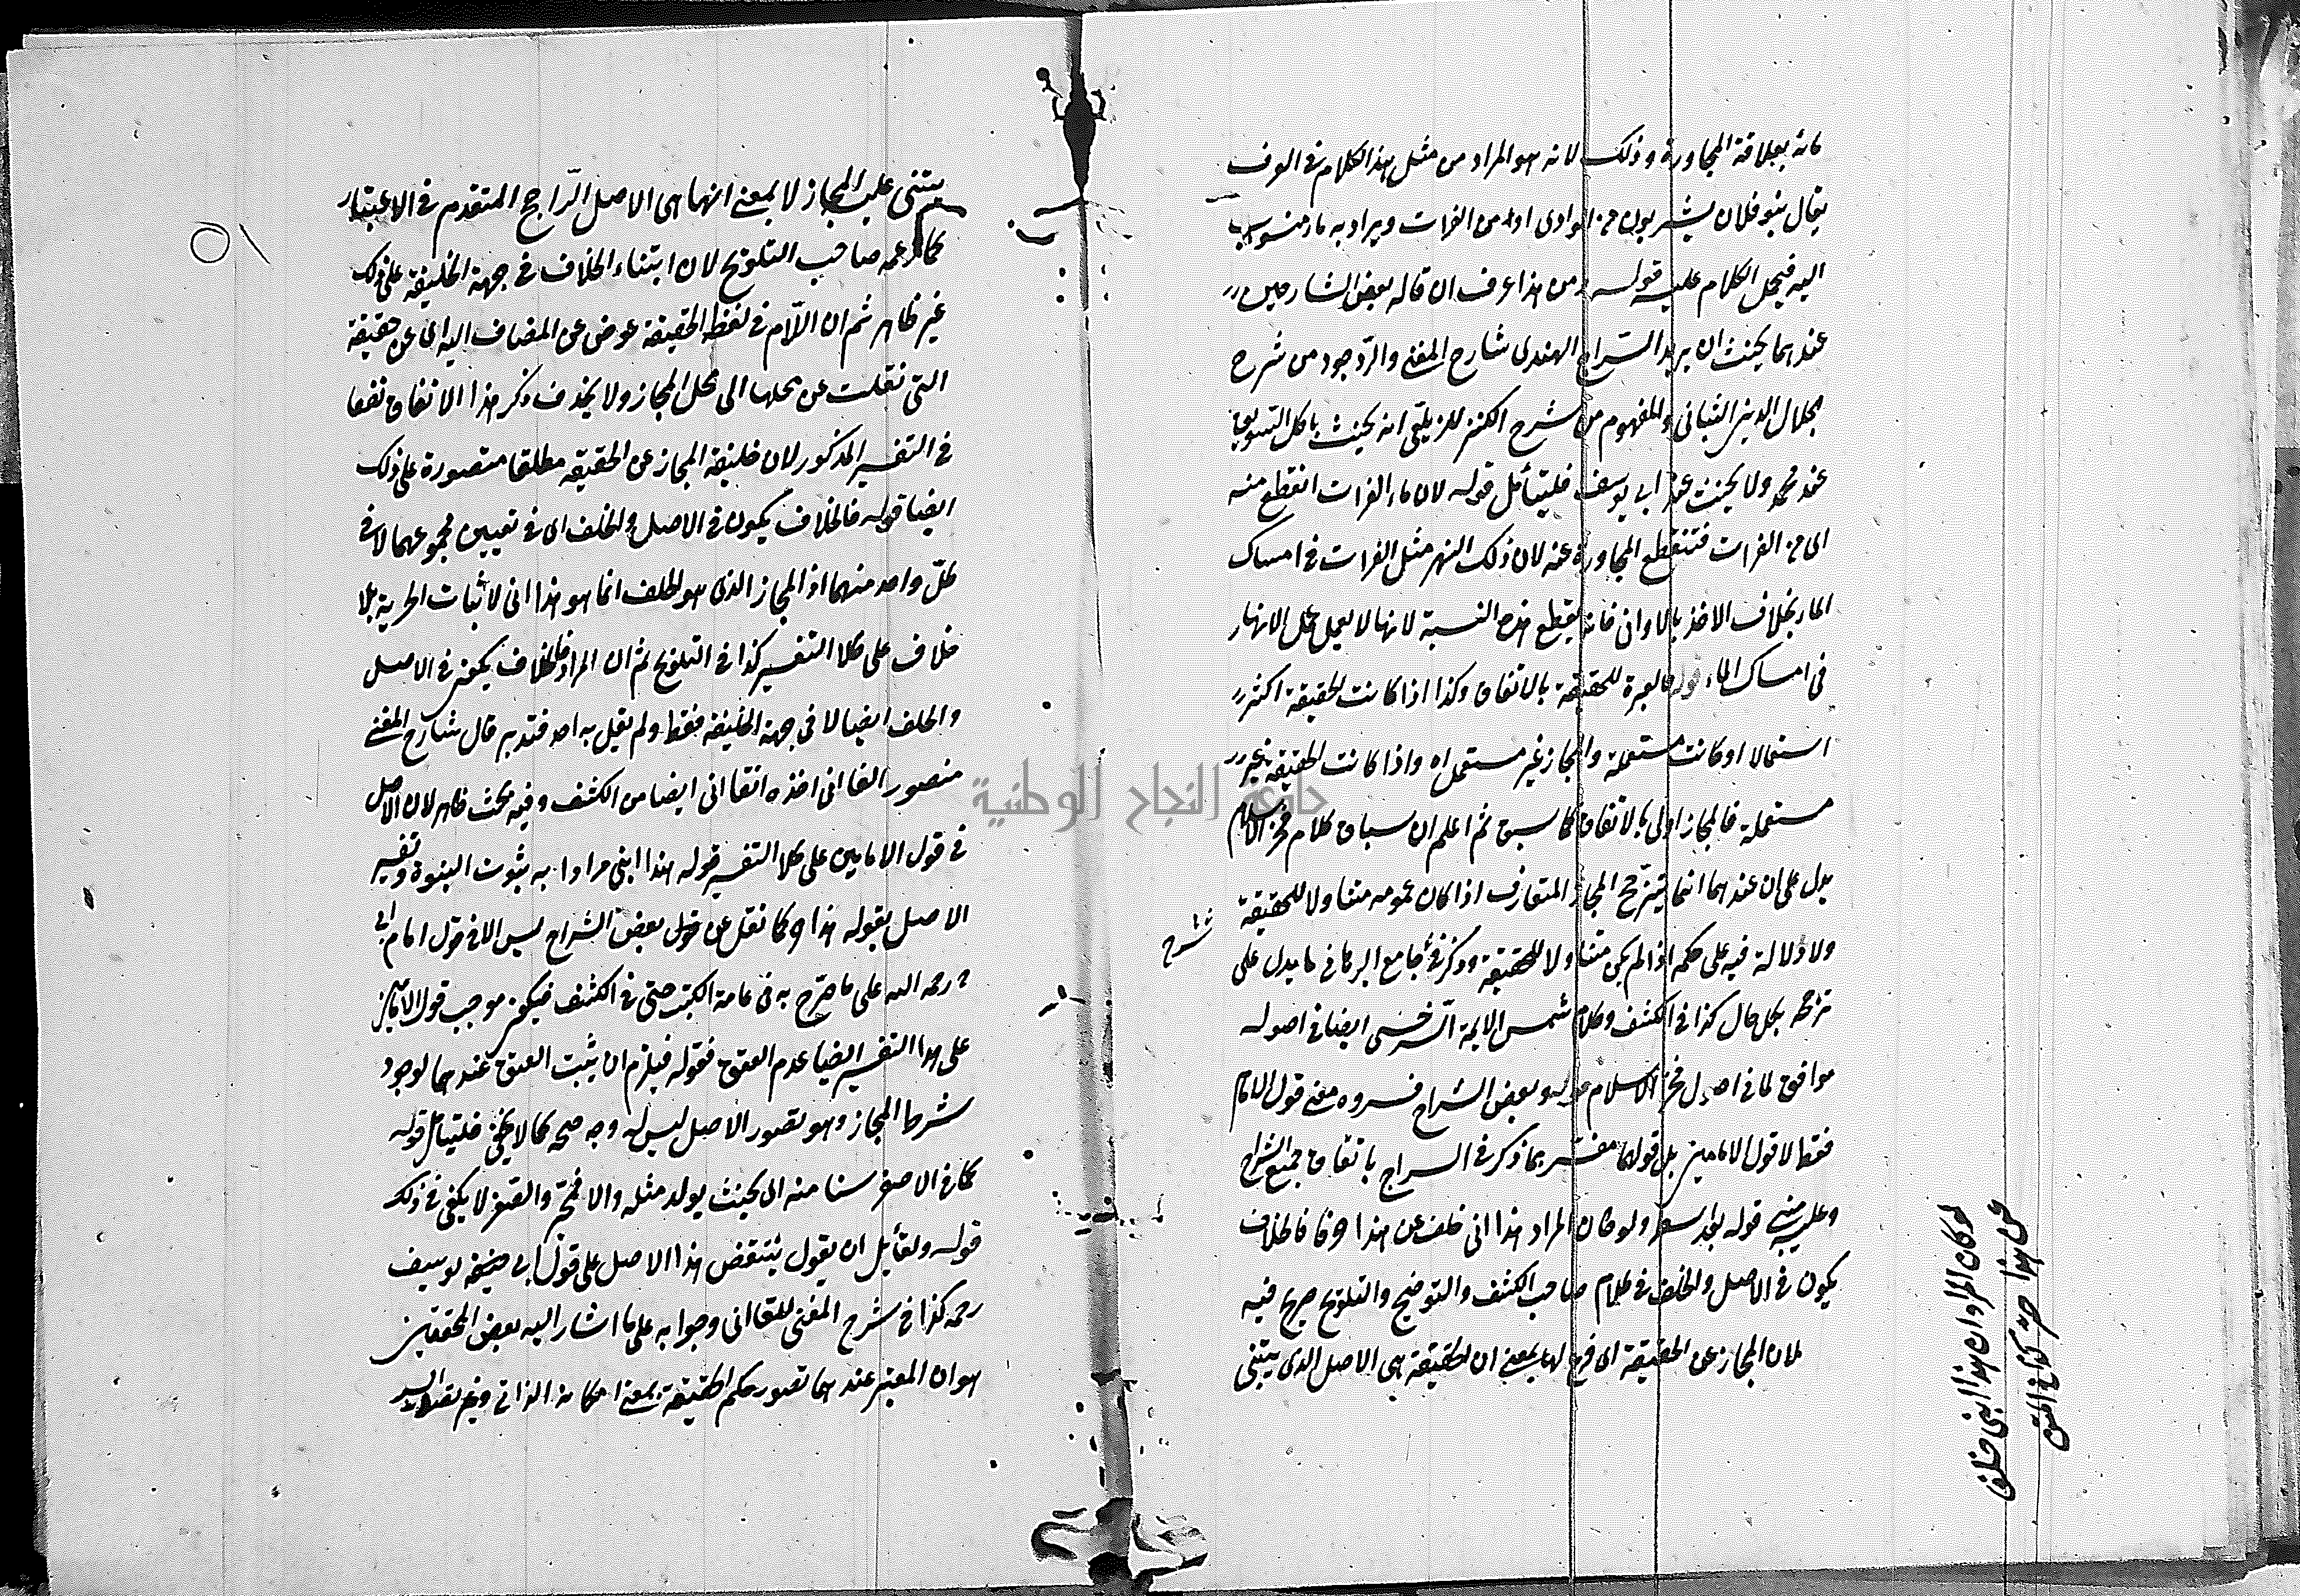 مائه بعلاقة المجاورة وذلك لانه هو المراد من مثل هذا الكلام في العرف
يقال بنو فلان يشربون من الوادى او من الفرات ويراد به ماء منسوب
اليه فيحمل الكلام عليه قوله ومن هذا عرف ان قاله بعض الشارحين
عندهما يحنث ان يريد السّراج الهندى شارح المغنى والرّد جود من شرح
جلال الدين التبانى والمفهوم من شرح الكنز للزيلعى انه يحنث باكل السويق
عند محمد ولا يحنث عند ابى يوسف فليتأمل قوله لان ماء الفرات انقطع منه
اى من الفرات فتنقطع المجاورة عنه لان ذلك النهر مثل الفرات في امساك
الماء بخلاف الاخذ بالاوانى فانه يقطع هذه النسبة لانها لا تعمل عمل الانهار
في امساك الماء قوله فالعبرة للحقيقة بالاتفاق وكذا اذا كانت الحقيقة اكثر
استعمالا او كانت مستعملة والمجاز غير مستعمل اه واذا كانت الحقيقة غير
مستعملة فالمجاز اولى بالاتفاق كما سبق ثم اعلم ان سياق كلام فخر الاسلام
يدل على ان عندهما انما يترجّح المجاز المتعارف اذا كان عمومه متناولا للحقيقة
ولا دلالة فيه على حكم اذا لم يكن متناولا للحقيقة وذكر في جامع البرهانى ما يدل على
ترجحه بكل حال كذا في الكشف وكلام شمس الايمة السّرخسى ايضا في اصوله
موافق لما في اصول فخر الاسلام قوله وبعض الشراح فسروه معنى قول الامام
فقط لا قول الامامين بل قولهما مفسّر بما ذكر في السراج باتفاق جميع الشراح
وعليه مبنى قوله بعد اسطر ولو كان المراد هذا انى خلف عن هذا حر فالخلاف
يكون في الاصل والخلف في كلام صاحب الكشف والتوضيح والتلويح صريح فيه
لان المجاز عن الحقيقة اى فرع لها بمعنى ان الحقيقة هى الاصل الذى يبتنى
شرح
لو كان المراد ان هذا ابنى خلف
عن هذا حر كان المعتق
٥١
يبتنى عليه المجاز لا بمعنى انها هى الاصل الرّاجح المتقدم في الاعتبار
كما زعمه صاحب التلويح لان ابتناء الخلاف في جهة الخليفة على ذلك
غير ظاهر ثم ان اللّام في لفظ الحقيقة عوض عن المضاف اليه اى عن حقيقة
التى نقلت عن محلها الى محل المجاز ولا يخذف ذكر هذا الاتفاق نفعا
في التفسير المذكور لان خليفة المجاز عن الحقيقة مطلقا متصورة على ذلك
ايضا قوله فالخلاف يكون في الاصل والخلف اى في تعيين مجموعهما لا في
كلّ واحد منهما اذ المجاز الذى هو الخلف انما هو هذا انى لاثبات الحرية بلا
خلاف على كلا التفسير كذا في التلويح ثم ان المراد فالخلاف يكون في الاصل
والخلف ايضا لا في جهة الخليفة فقط ولم يقل به احد فتدبر قال شارح المغنى
منصور القاانى اخذه اتقانى ايضا من الكشف وفيه بحث ظاهر لان الاصل
في قول الامامين على كلا التفسير قوله هذا ابنى مرادا به ثبوت البنوة وتفسير
الاصل بقوله هذا حر كما نقل عن بعض الشراح ليس الا في قول امام ابى
ح رحمه الله على ما صرّح به في عامة الكتب حتى في الكشف فيكون موجب قول الامامين
على هذا التفسير ايضا عدم العتق فقوله فيلزم ان يثبت العتق عندهما لوجود
شرط المجاز وهو تصور الاصل ليس له وجه صحه كما لا يخفى فليتأمل قوله
كما في الاصغر سنا منه اى بحيث يولد مثله والا فمجرّد الصغر لا يكفى في ذلك
قوله ولقائل ان يقول ينتقض هذا الاصل على قول ابى حنيفه يوسف
رحمه كذا في شرح المغنى للقاانى وجوابه على ما اشار اليه بعض المحققين
هو ان المعتبر عندهما تصور حكم الحقيقة بمعنى امكانه الذاتى
جامعة النجاح الوطنية